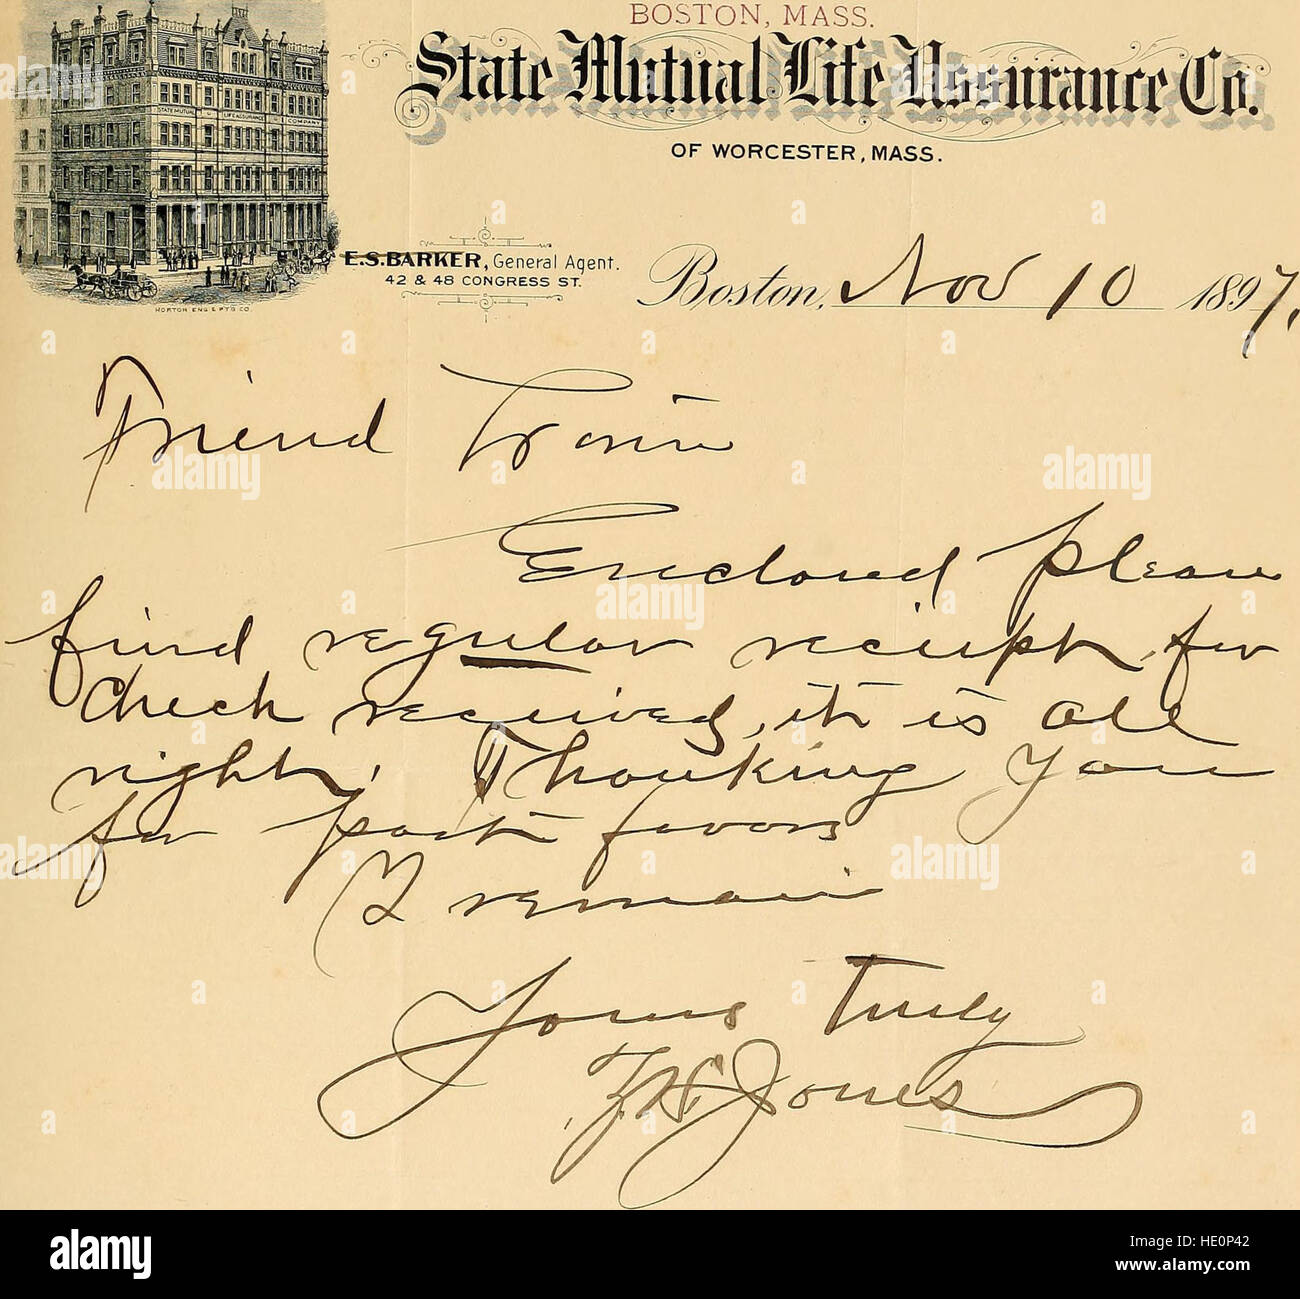 BOSTON, MASS.
State Mutual Life Assurance Co.
OF WORCESTER, MASS.
STATE MUTUAL LIFE ASSURANCE COMPANY
HORTON ENG & PTG CO.
E.S. BARKER, General Agent.
42 & 48 CONGRESS ST.
Boston, Nov 10 1897.
Friend
Enclosed please
find regular receipt for
check received, it is all
right. Thanking you
for past favors
I remain
Yours Truly
Jones
alamy
alamy stock photo
HE0P42
www.alamy.com